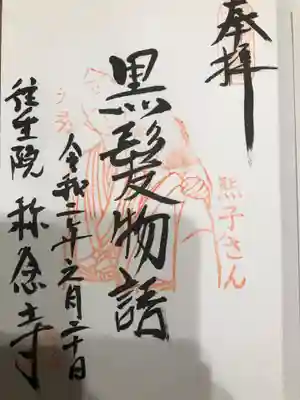 奉拝
黒髪物語
熙子さん
令和二年元月二十日
往生院 称念寺